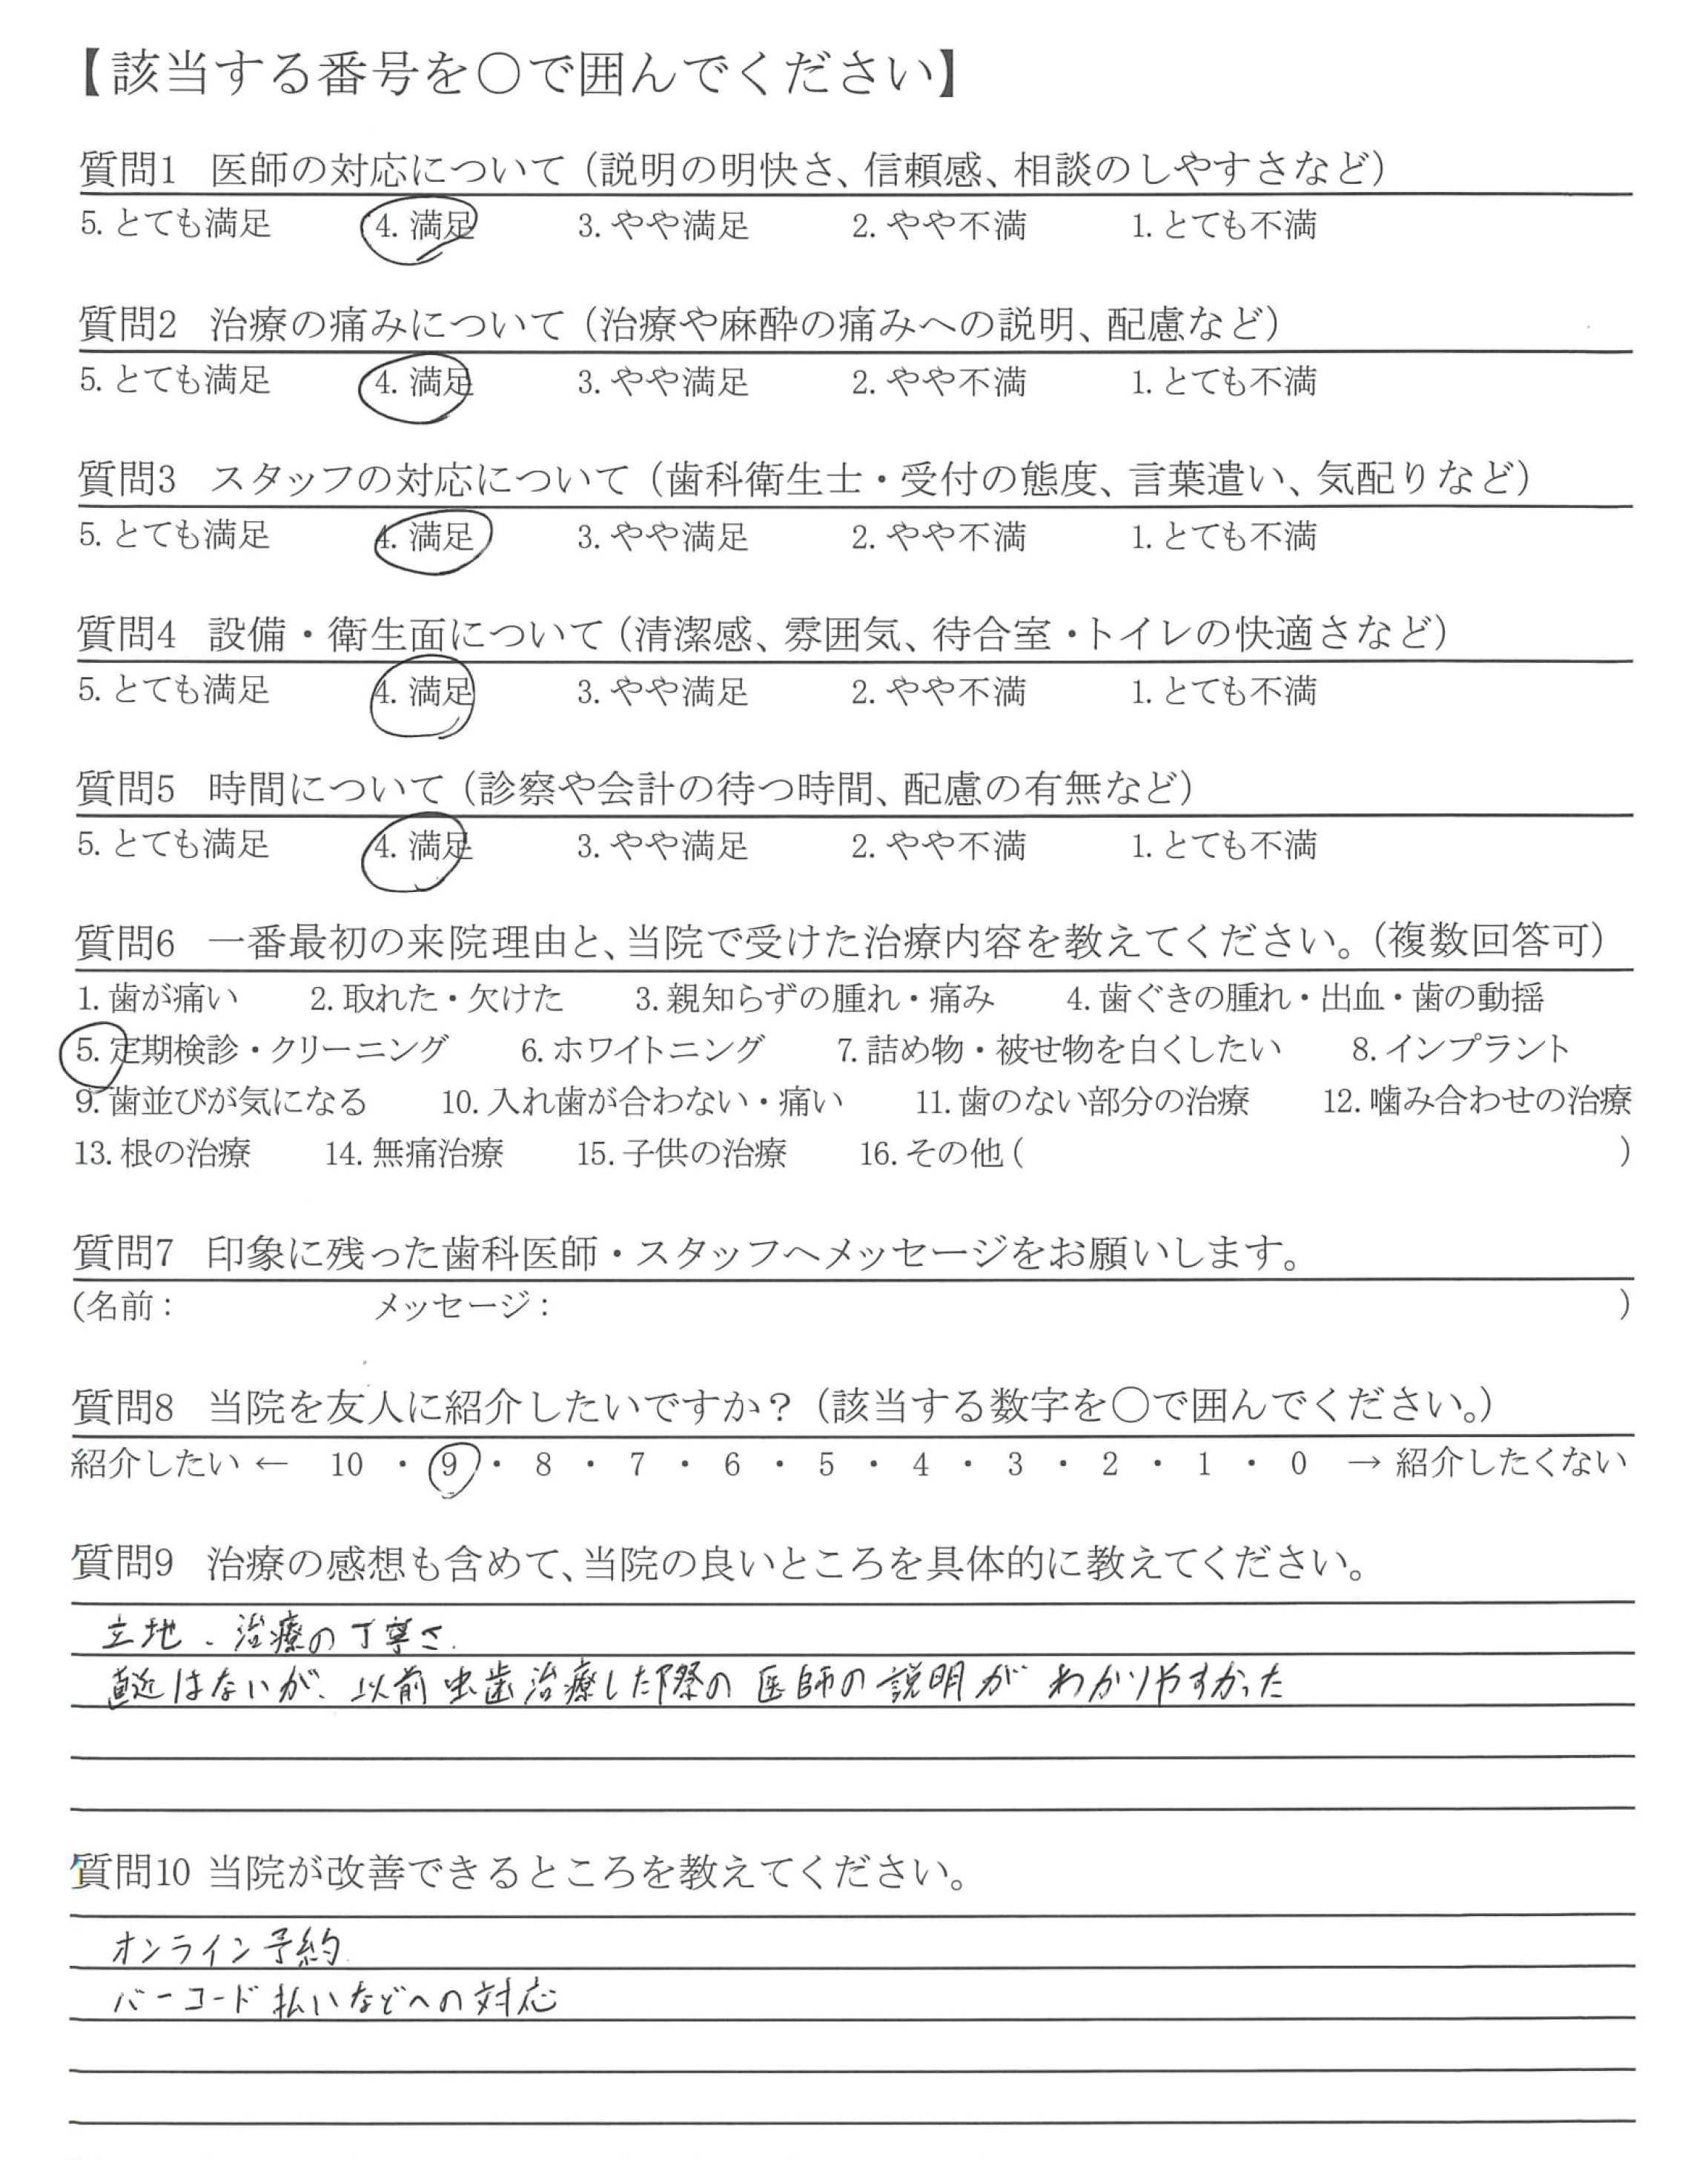 【該当する番号を○で囲んでください】
質問1 医師の対応について（説明の明快さ、信頼感、相談のしやすさなど）
5. とても満足 4. 満足 3. やや満足 2. やや不満 1. とても不満
質問2 治療の痛みについて（治療や麻酔の痛みへの説明、配慮など）
5. とても満足 4. 満足 3. やや満足 2. やや不満 1. とても不満
質問3 スタッフの対応について（歯科衛生士・受付の態度、言葉遣い、気配りなど）
5. とても満足 4. 満足 3. やや満足 2. やや不満 1. とても不満
質問4 設備・衛生面について（清潔感、雰囲気、待合室・トイレの快適さなど）
5. とても満足 4. 満足 3. やや満足 2. やや不満 1. とても不満
質問5 時間について（診察や会計の待つ時間、配慮の有無など）
5. とても満足 4. 満足 3. やや満足 2. やや不満 1. とても不満
質問6 一番最初の来院理由と、当院で受けた治療内容を教えてください。（複数回答可）
1. 歯が痛い 2. 取れた・欠けた 3. 親知らずの腫れ・痛み 4. 歯ぐきの腫れ・出血・歯の動揺
5. 定期検診・クリーニング 6. ホワイトニング 7. 詰め物・被せ物を白くしたい 8. インプラント
9. 歯並びが気になる 10. 入れ歯が合わない・痛い 11. 歯のない部分の治療 12. 噛み合わせの治療
13. 根の治療 14. 無痛治療 15. 子供の治療 16. その他（ ）
質問7 印象に残った歯科医師・スタッフへメッセージをお願いします。
（名前： メッセージ： ）
質問8 当院を友人に紹介したいですか？（該当する数字を○で囲んでください。）
紹介したい ← 10 ・ 9 ・ 8 ・ 7 ・ 6 ・ 5 ・ 4 ・ 3 ・ 2 ・ 1 ・ 0 → 紹介したくない
質問9 治療の感想も含めて、当院の良いところを具体的に教えてください。
立地、治療の丁寧さ
直近はないが、以前虫歯治療した際の医師の説明がわかりやすかった
質問10 当院が改善できるところを教えてください。
オンライン予約
バーコード払いなどへの対応